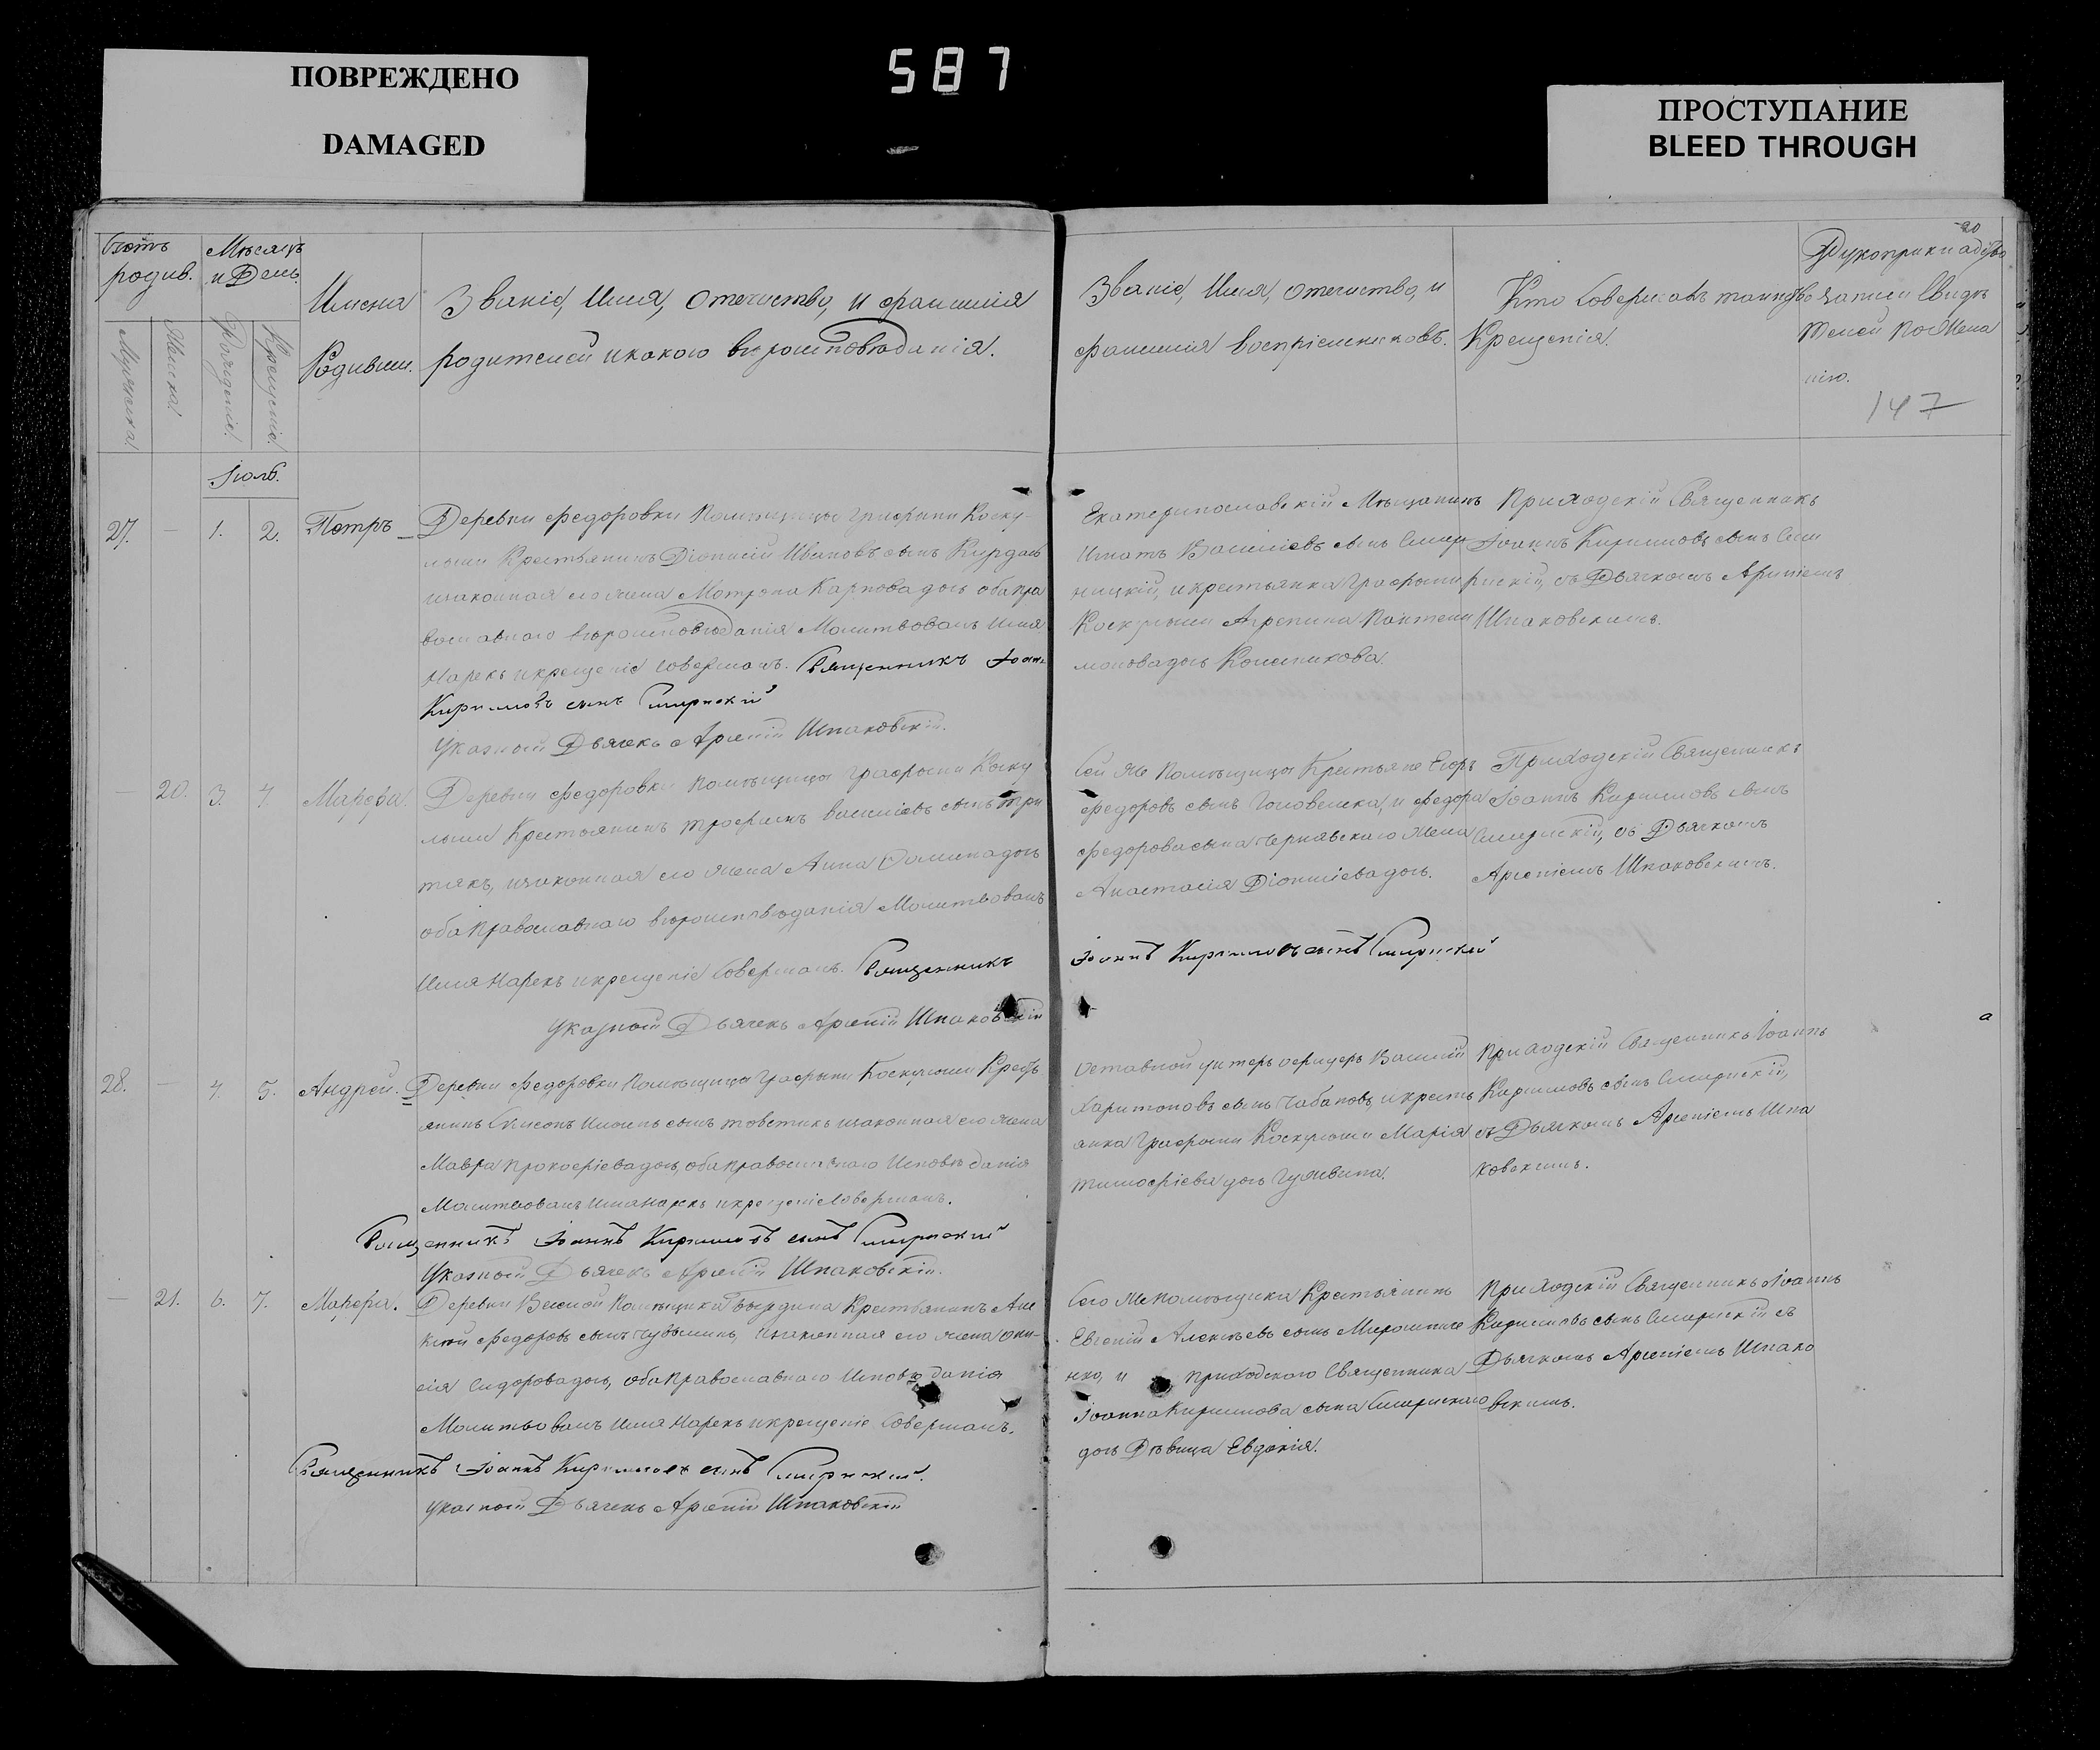 ПОВРЕЖДЕНО
DAMAGED
587
ПРОСТУПАНИЕ
BLEED THROUGH
родив.
Мѣсяцъ
и День
Мужеска
Женска
Рожденіе
Крещеніе
Имена
Родивш.
Званіе, Имя, отечество, и фамилія
родителей и какого вѣроисповѣданія.
Званіе, Имя, отечество, и
фамилія воспріемниковъ.
Кто Совершалъ таинство
Крещенія.
Рукоприкладство
записи Свидѣ
телей По Жела
нію.
147
Іюль.
27. — 1. 2. Петръ
Деревни Федоровки Помѣщицы Графини
Крестьянинъ Діонисій Ивановъ сынъ
изаконная его жена Мотрона Карпова дочь оба пра
вославнаго вѣроисповѣданія Молитвовалъ Имя
Нарекъ и крещеніе совершалъ. Священникъ Іоаннъ
Кириловъ сынъ Смирнскій
Указной Дьячекъ Арсеній Шпаковскій.
Екатеринославскій Мѣщанинъ
Игнатъ Василіевъ сынъ
ницкій, и крестьянка Графини
Агрепина Пантелеи
монова дочь
Приходскій Священникъ
Іоаннъ Кириловъ сынъ Сми
рнскій, съ Дьячкомъ Арсеніемъ
Шпаковскимъ.
— 20. 3. 4. Марфа.
Деревни Федоровки Помѣщицы Графини Коску
льши Крестьянинъ Трофимъ Василіевъ сынъ
изаконная его жена Анна дочь
оба православнаго вѣроисповѣданія Молитвовалъ
Имя Нарекъ и крещеніе Совершалъ. Священникъ
Іоаннъ Кириловъ сынъ Смирнскій
Указной Дьячекъ Арсеній Шпаковскій
Сей же Помѣщицы Крестьяне Егоръ
Федоровъ сынъ и Федора
Федорова сына Чернявскаго жена
Анастасія Діонисіева дочь.
Приходскій Священникъ
Іоаннъ Кириловъ сынъ
Смирнскій, съ Дьячкомъ
Арсеніемъ Шпаковскимъ.
28. — 4. 5. Андрей.
Деревни Федоровки Помѣщицы Графини Крестъ
янинъ Симеонъ сынъ изаконная его жена
Мавра Прокофіева дочь, оба православнаго Исповѣданія
Молитвовалъ Имя Нарекъ и крещеніе Совершалъ.
Священникъ Іоаннъ Кириловъ сынъ Смирнскій
Указной Дьячекъ Арсеній Шпаковскій.
Оставной унтеръ офицеръ Василій
Харитоновъ сынъ Чабановъ, и кресть
янка Графини Марія
Тимофіева дочь
Приходскій Священникъ Іоаннъ
Кириловъ сынъ Смирнскій,
съ Дьячкомъ Арсеніемъ Шпа
ковскимъ.
— 21. 6. 7. Марфа.
Деревни Веселой Помѣщика Крестьянинъ Але
ксѣй Федоровъ сынъ изаконная его жена
Сидорова дочь, оба православнаго Исповѣданія
Молитвовалъ Имя Нарекъ и крещеніе Совершалъ.
Священникъ Іоаннъ Кириловъ сынъ Смирнскій.
Указной Дьячекъ Арсеній Шпаковскій
Сего же Помѣщика Крестьянинъ
Евгеній Алексѣевъ сынъ Мирошниче
нко, и приходского Священника
Іоанна Кирилова сына Смирнскаго
дочь Дѣвица Евдокія.
Приходскій Священникъ Іоаннъ
Кириловъ сынъ Смирнскій съ
Дьячкомъ Арсеніемъ Шпако
вскимъ.